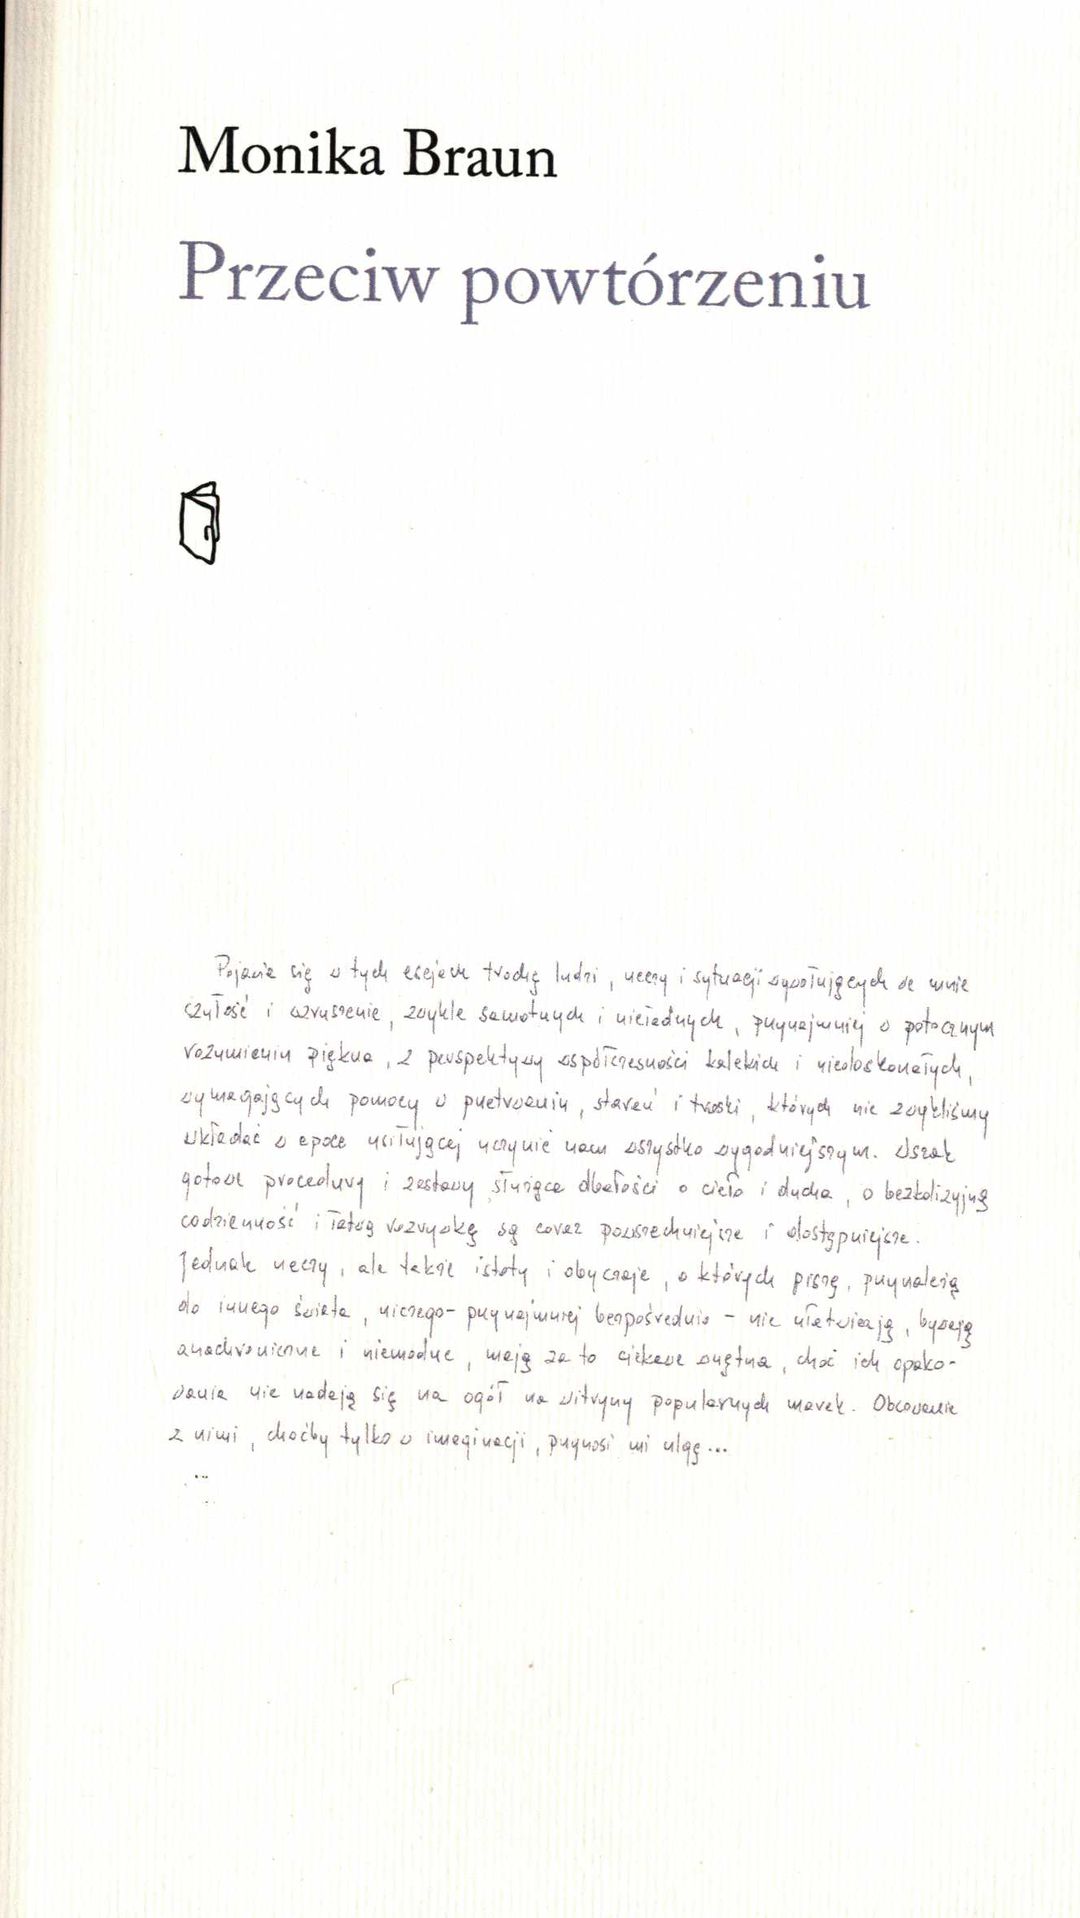 Monika Braun
Przeciw powtórzeniu
Pojawia się w tych esejach trochę ludzi, rzeczy i sytuacji wywołujących we mnie
czułość i wzruszenie, zwykle samotnych i nieładnych, przynajmniej w potocznym
rozumieniu piękna, z perspektywy współczesności kalekich i niedoskonałych,
wymagających pomocy w przetrwaniu, starań i troski, których nie zwykliśmy
wkładać w epoce usiłującej uczynić nam wszystko wygodniejszym. Wszak
gotowe procedury i zestawy służące dbałości o ciało i ducha, o bezkolizyjną
codzienność i łatwą rozrywkę są coraz powszechniejsze i dostępniejsze.
Jednak rzeczy, ale także istoty i obyczaje, o których piszę, przynależą
do innego świata, niczego - przynajmniej bezpośrednio - nie ułatwiają, bywają
anachroniczne i niemodne, mają za to ciekawe wnętrza, choć ich opako-
wania nie nadają się na ogół na witryny popularnych marek. Obcowanie
z nimi, choćby tylko w imaginacji, przynosi mi ulgę...
...